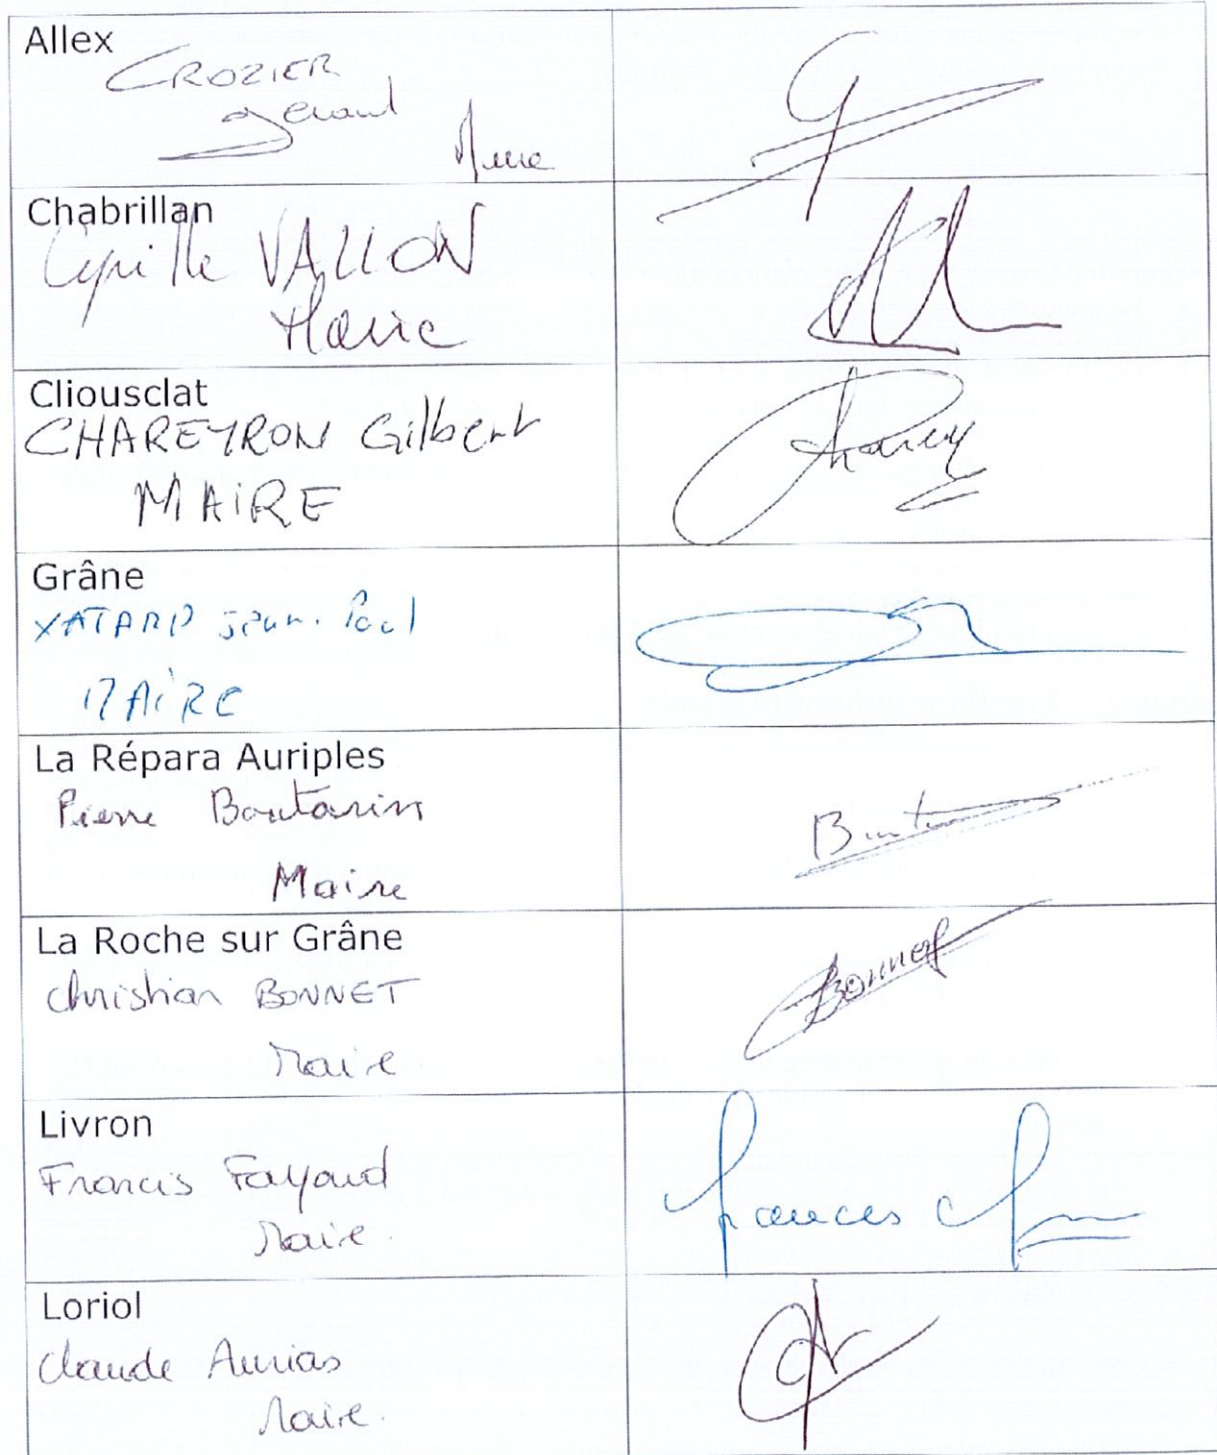 Allex
CROZIER
Gérard
Maire
Chabrillan
Cyrille VALLON
Maire
Cliousclat
CHAREYRON Gilbert
MAIRE
Grâne
XATARD Jean-Paul
MAIRE
La Répara Auriples
Pierre Boutarin
Maire
La Roche sur Grâne
Christian BONNET
Maire
Bonnet
Livron
Francis Fayard
Maire.
Loriol
Claude Aurias
Maire.